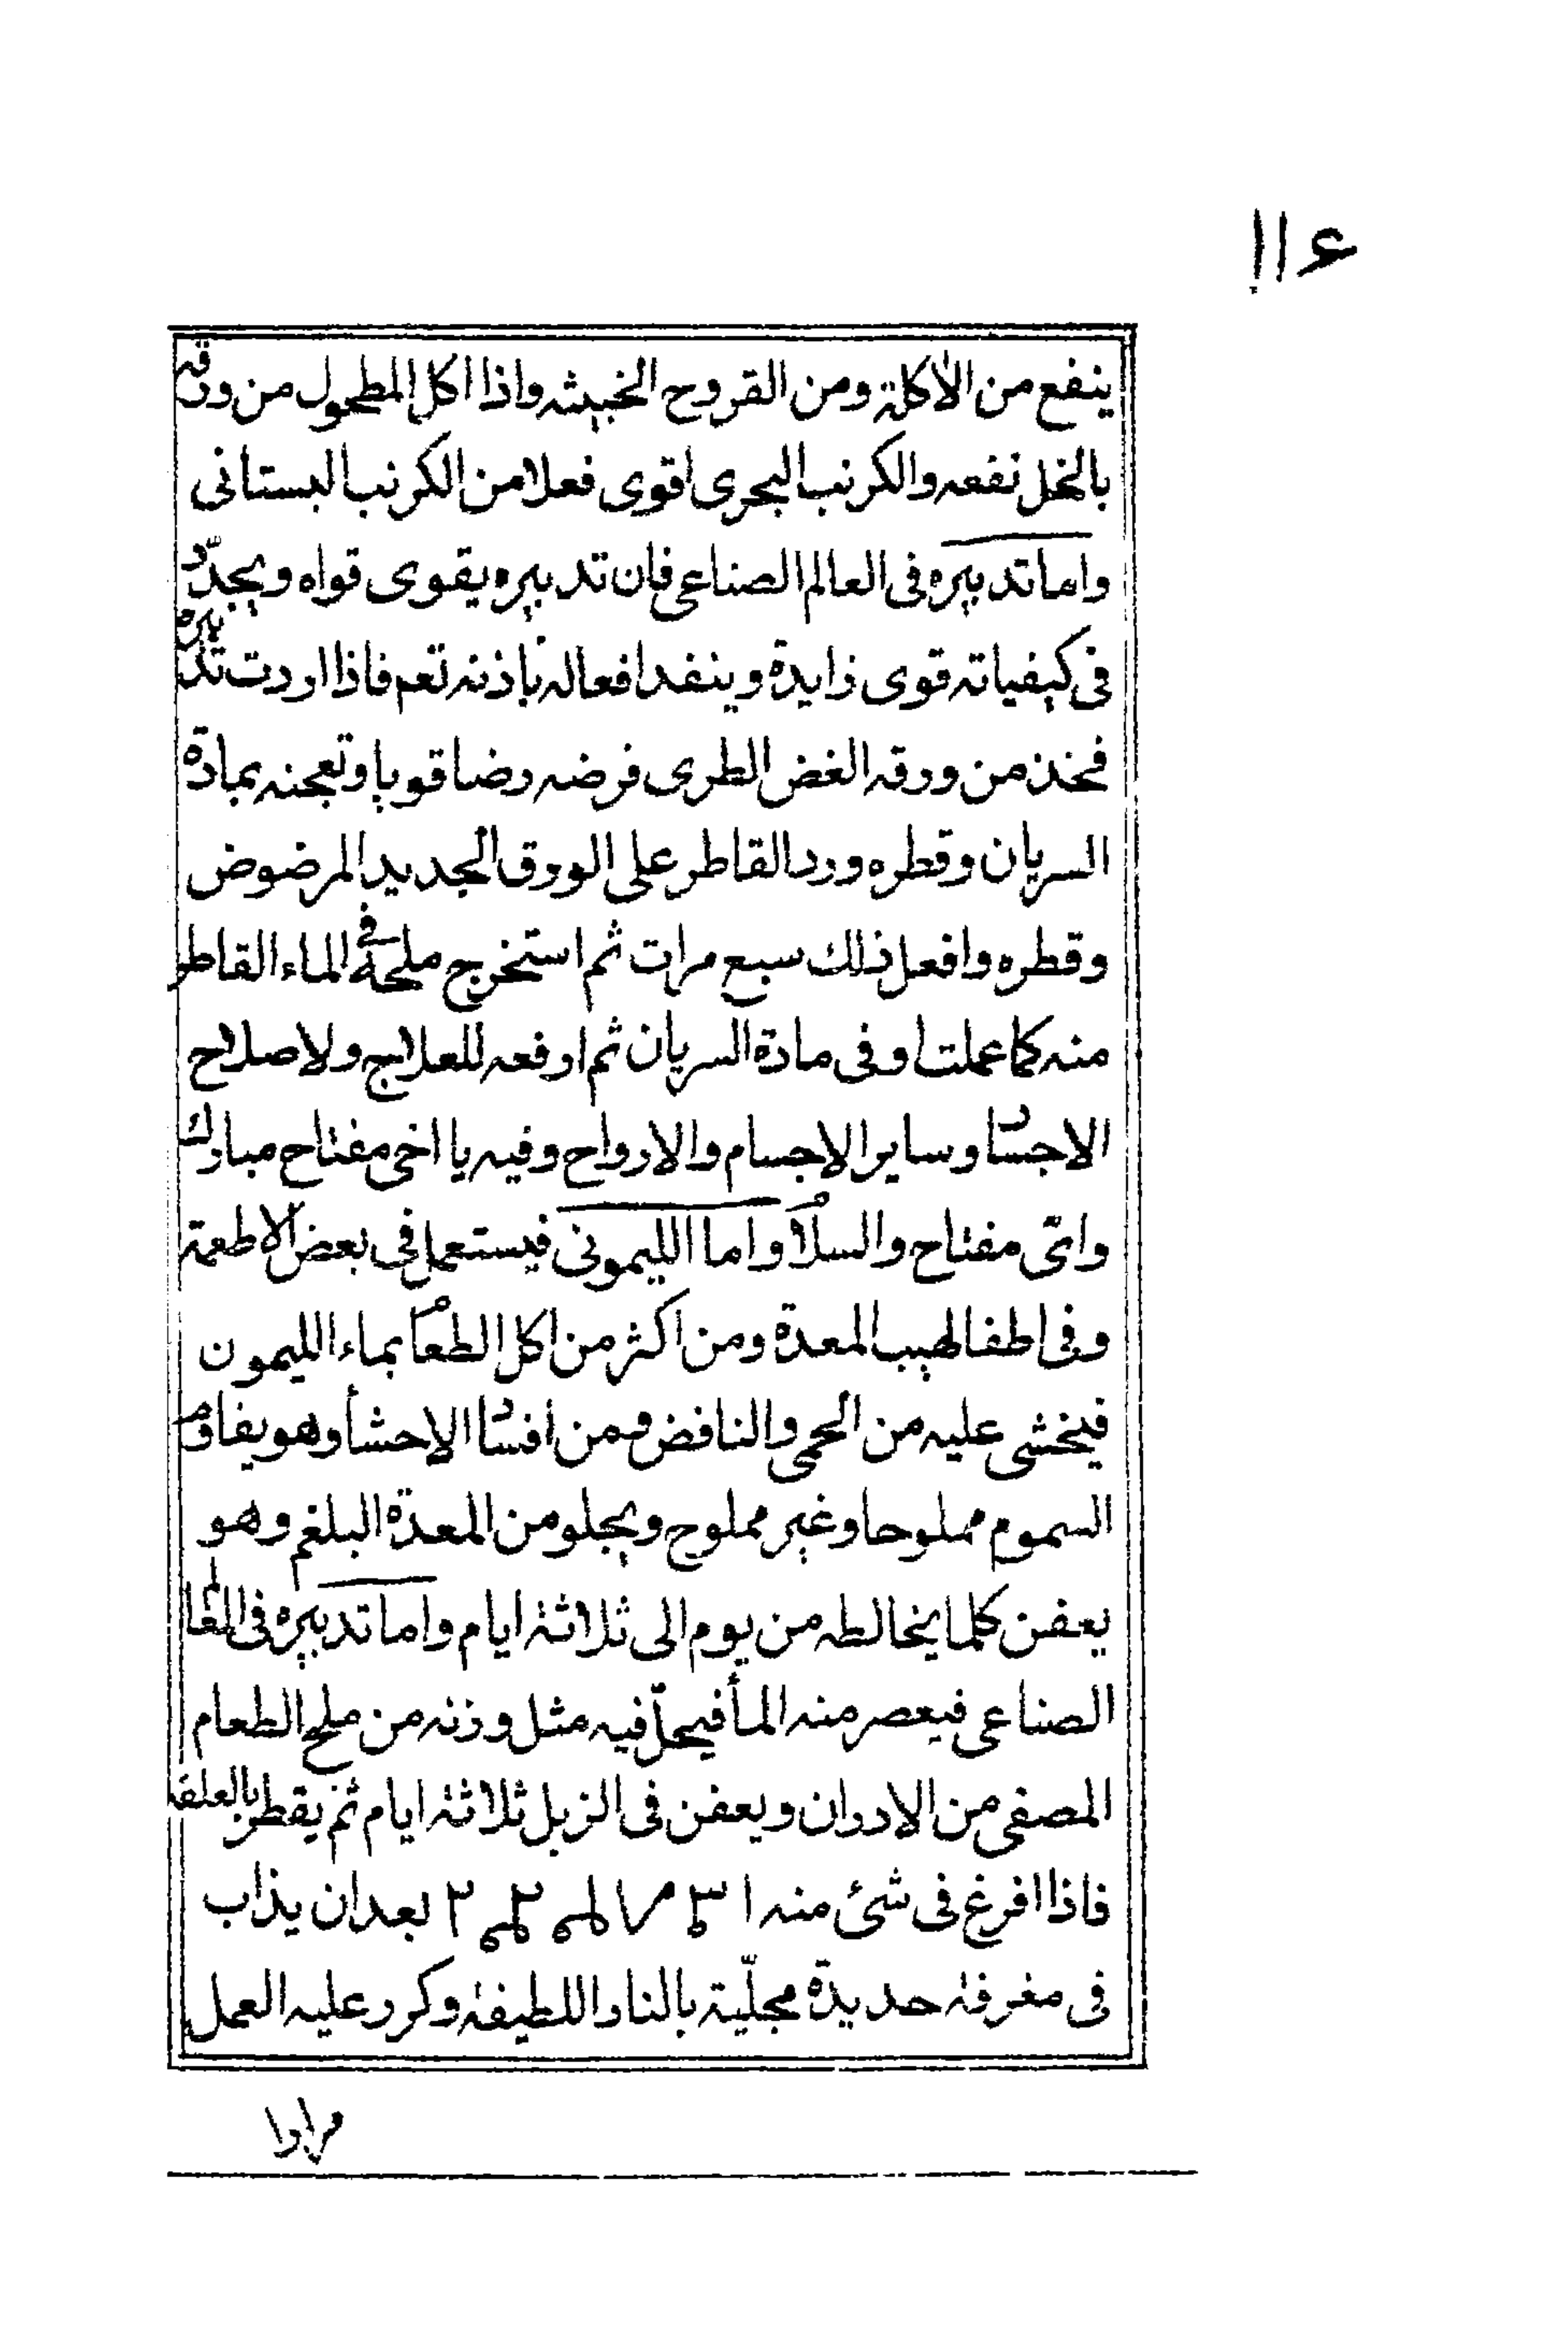 ١١٤
ينفع من الاكلة ومن القروح الخبيثه واذا اكل المطحول من ورقه
بالخل نفعه والكرنب البحرى اقوى فعلا من الكرنب البستانى
واما تدبيره فى العالم الصناعى فان تدبيره يقوى قواه ويجدّد
فى كيفياته قوى زايدة وينفد افعاله باذنه تعم فاذا اردت تدبيره
فخذ من ورقه الغض الطرى فرضه رضا قويا وتعجنه بمادة
السريان وقطره ورد القاطر على الورق الجديد المرضوض
وقطره وافعل ذلك سبع مرات ثم استخرج ملحه فى الماء القاطر
منه كما عملت اوفى مادة السريان ثم ارفعه للعلاج ولاصلاح
الاجساد وساير الاجسام والارواح وفيه يا اخى مفتاح مبارك
واتى مفتاح والسلام واما الليمونى فيستعمل فى بعض الاطعمة
وفى اطفا لهيب المعدة ومن اكثر من اكل الطعام بماء الليمون
فيخشى عليه من الحمى والنافض ومن افساد الاحشأ وهو يقاوم
السموم مملوحا وغير مملوح ويجلو من المعدة البلغم وهو
يعفن كلما يخالطه من يوم الى ثلاثة ايام واما تدبيره فى العالم
الصناعى فيعصر منه المأ فيحلّ فيه مثل وزنه من ملح الطعام
المصفى من الادران ويعفن فى الزبل ثلاثة ايام ثم يقطر بالعلقه
فاذا افرغ فى شئ منه بعد ان يذاب
فى مغرفة حديدة مجلّية بالنار اللطيفة وكرر عليه العمل
مرارا